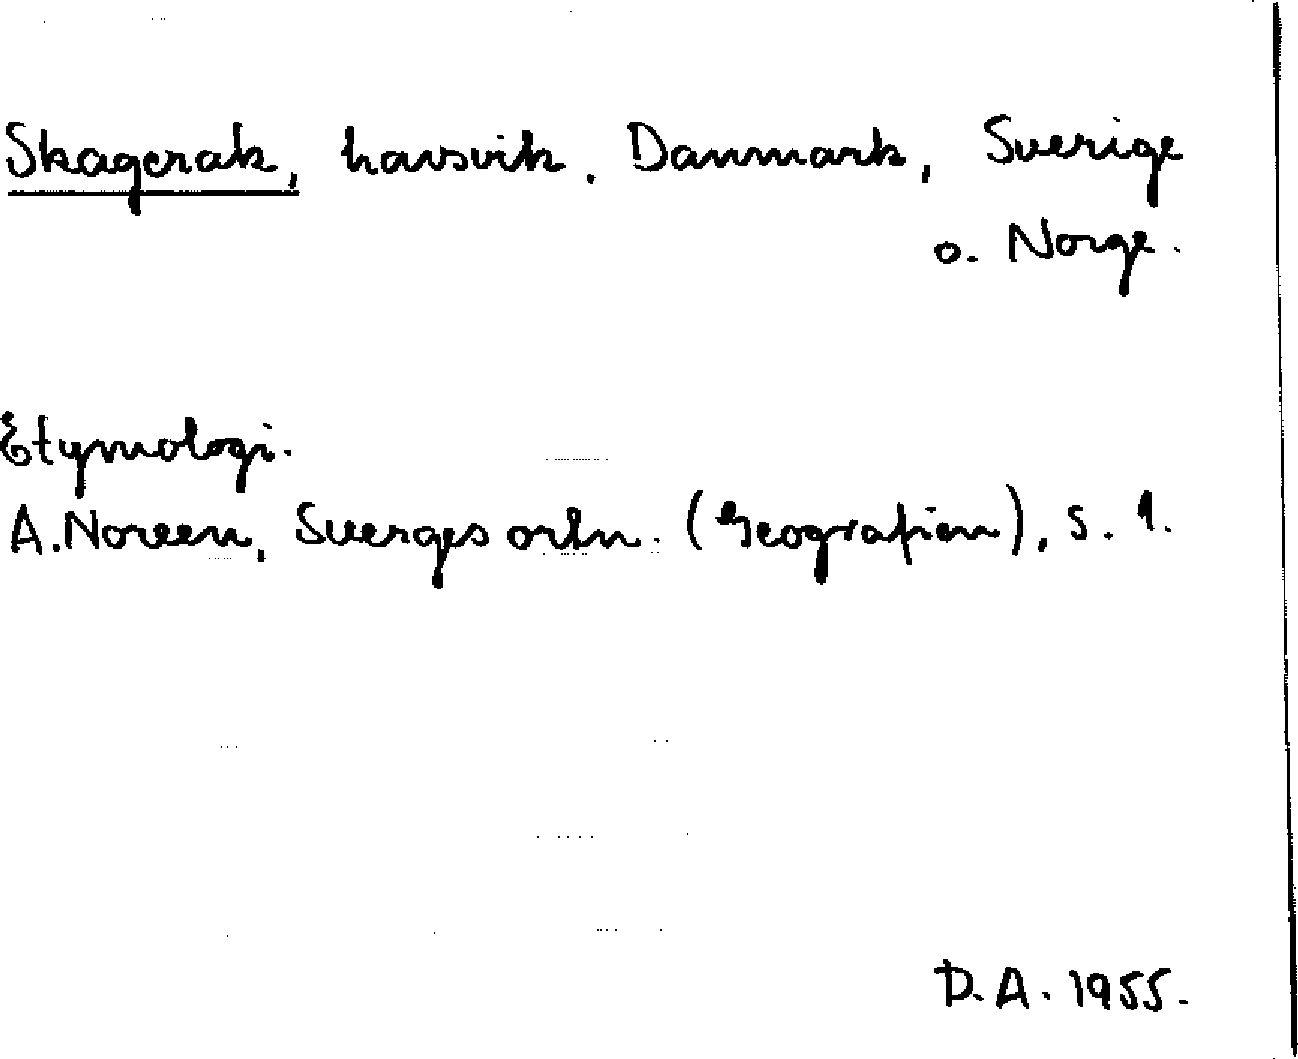 Skagerak, havsvik. Danmark, Sverige
o. Norge.
Etymologi.
A. Noreen, Sverges ortn. (Geografien), s. 1.
D.A. 1955.